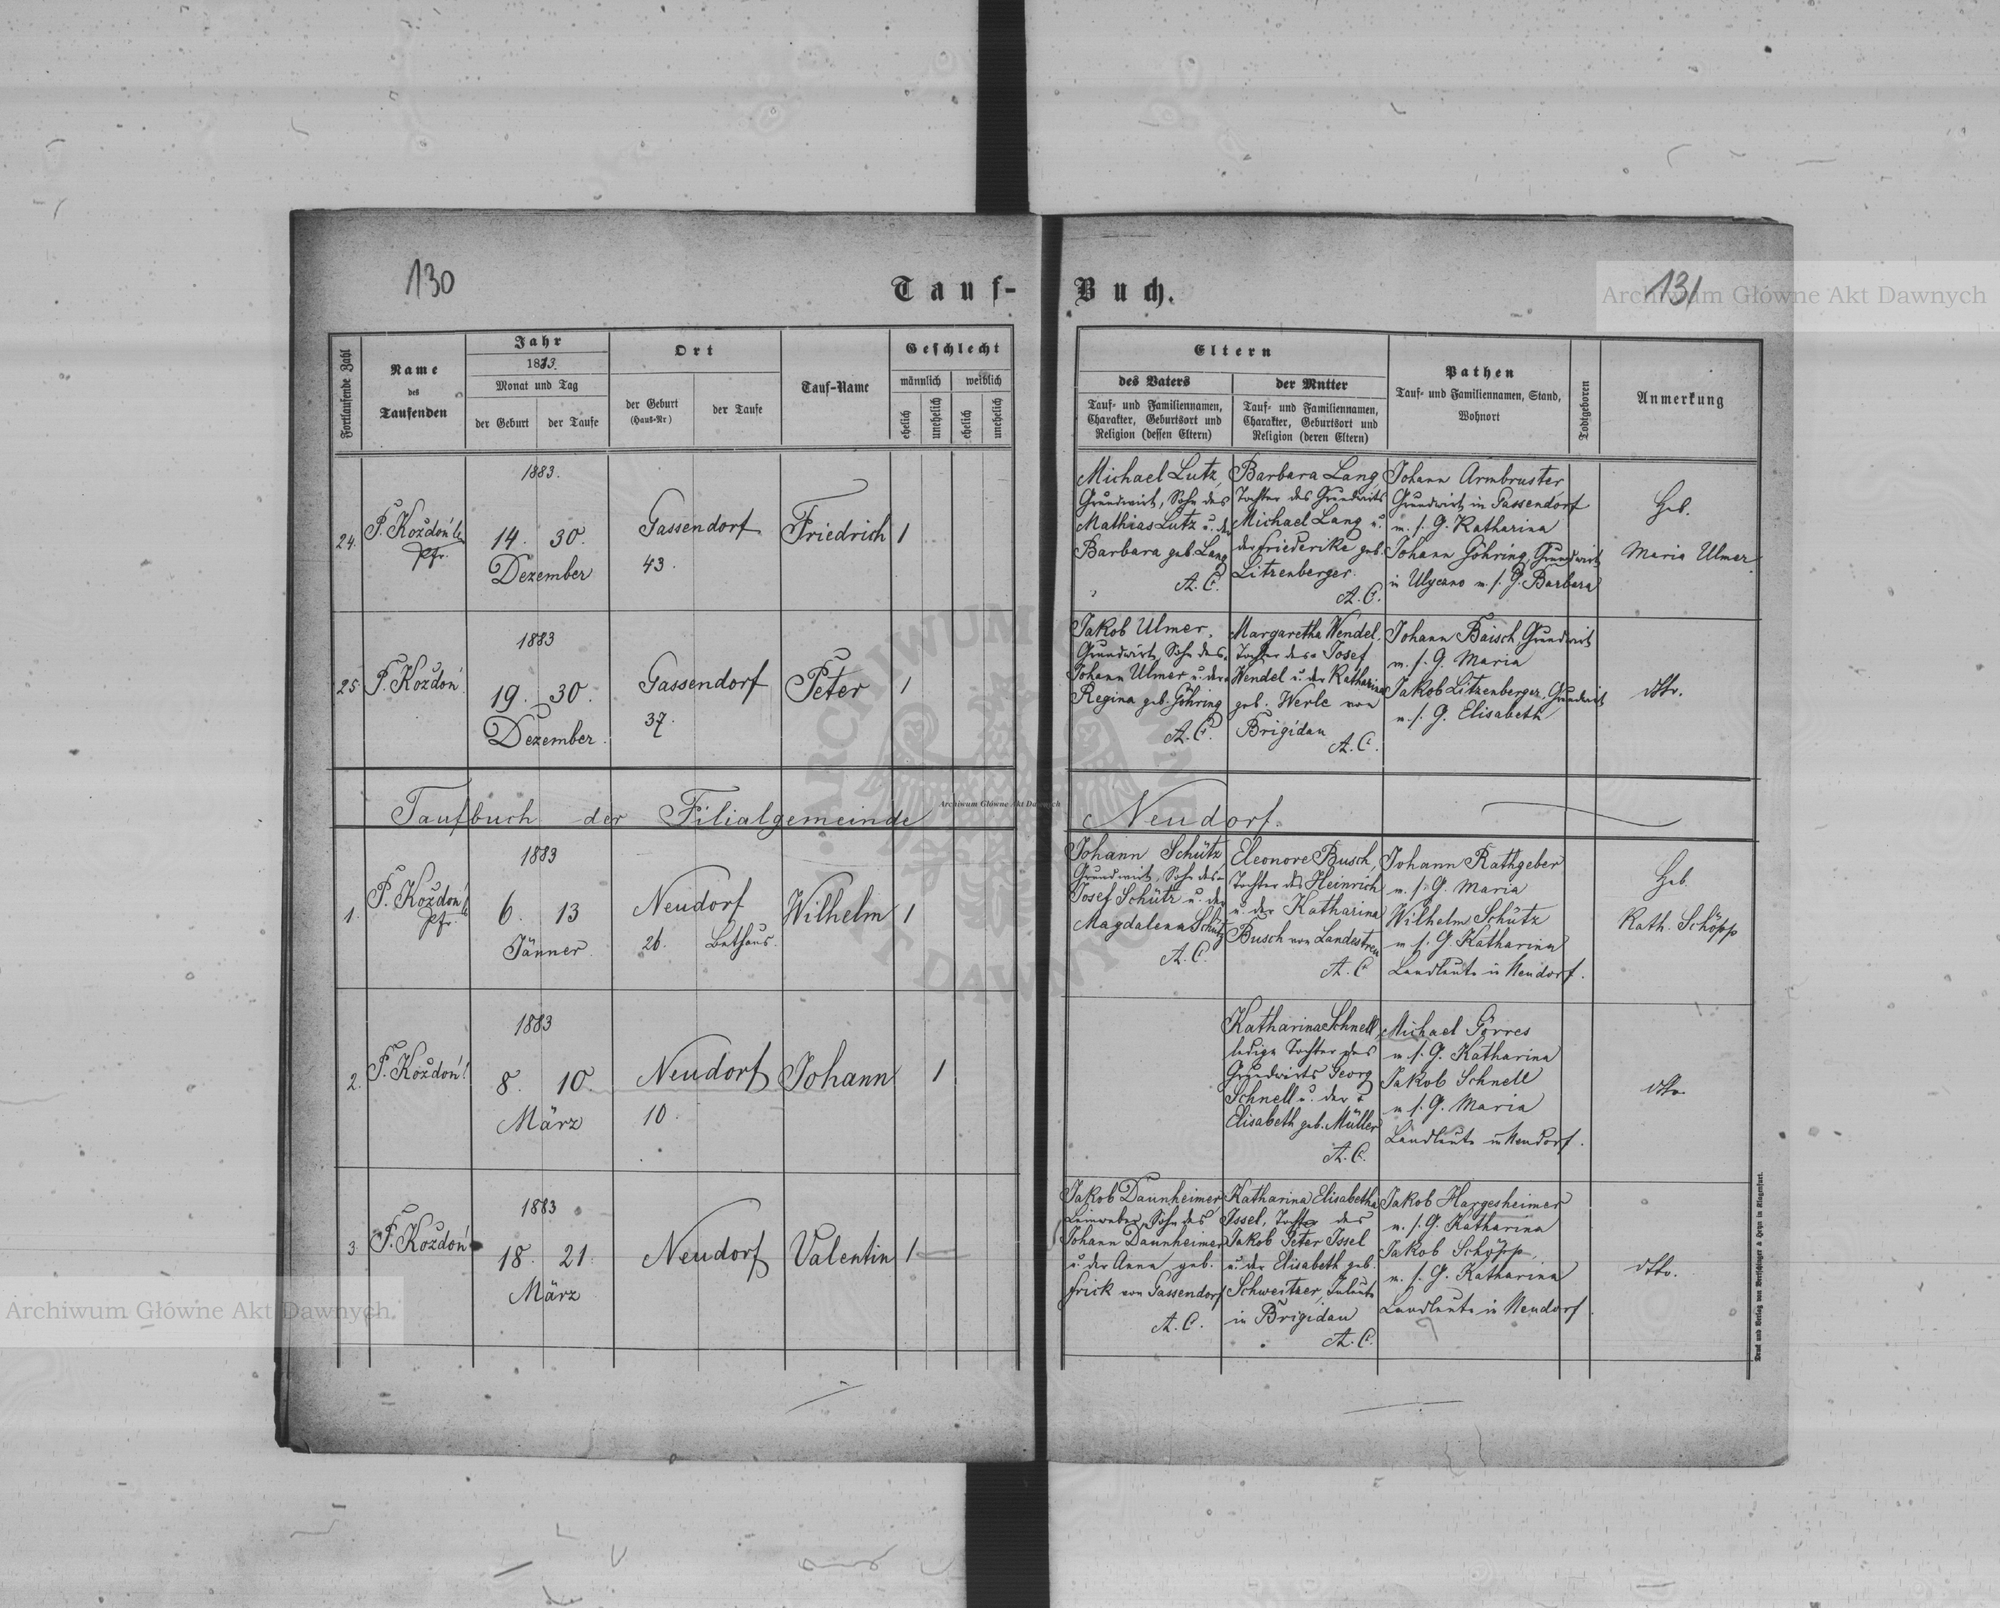 130
Tauf-
Buch.
131
Archiwum Główne Akt Dawnych
Fortlaufende Zahl
Name
des
Taufenden
Jahr
1883.
Monat und Tag
der Geburt
der Taufe
Ort
der Geburt
(Haus-Nr)
der Taufe
Tauf-Name
Geschlecht
männlich
weiblich
ehelich
unehelich
ehelich
unehelich
Eltern
des Vaters
Tauf- und Familiennamen,
Charakter, Geburtsort und
Religion (dessen Eltern)
der Mutter
Tauf- und Familiennamen,
Charakter, Geburtsort und
Religion (deren Eltern)
Pathen
Tauf- und Familiennamen, Stand,
Wohnort
Todtgeboren
Anmerkung
24.
F. Kozdoń
Pfr.
1883.
14. 30.
Dezember
Gassendorf
43.
Friedrich
1
Michael Lutz,
Grundwirt, Sohn des
Mathias Lutz u. der
Barbara geb. Lang
A. C.
Barbara Lang,
Tochter des Grundwirts
Michael Lang u.
der Friederike geb.
Litzenberger.
A. C.
Johann Armbruster,
Grundwirt in Gassendorf
m. s. G. Katharina
Johann Göhring, Grundwirt
in Ulycano m. s. G. Barbara
Heb.
Maria Ulmer.
25.
F. Kozdoń
1883
19. 30.
Dezember.
Gassendorf
37.
Peter
1
Jakob Ulmer,
Grundwirt, Sohn des
Johann Ulmer u. der
Regina geb. Göhring
A. C.
Margaretha Wendel,
Tochter des Josef
Wendel u. der Katharina
geb. Werle von
Brigidau
A. C.
Johann Baisch, Grundwirt
m. s. G. Maria
Jakob Litzenberger, Grundwirt
m. s. G. Elisabeth
dtto.
Taufbuch der Filialgemeinde
Neudorf.
1.
F. Kozdoń
Pfr.
1883
6. 13
Jänner.
Neudorf
26. Bethaus.
Wilhelm
1
Johann Schütz
Grundwirt, Sohn des
Josef Schütz u. der
Magdalena Schütz
A. C.
Eleonore Busch,
Tochter des Heinrich
u. der Katharina
Busch von Landestreu
A. C.
Johann Rathgeber
m. s. G. Maria
Wilhelm Schütz
m. s. G. Katharina
Landleute in Neudorf.
Heb.
Kath. Schöpp
2.
F. Kozdoń
1883
8. 10.
März
Neudorf
10.
Johann
1
Katharina Schnell,
ledige Tochter des
Grundwirts Georg
Schnell u. der
Elisabeth geb. Müller
A. C.
Michael Görres
m. s. G. Katharina
Jakob Schnell
m. s. G. Maria
Landleute in Neudorf.
dtto.
3.
F. Kozdoń
1883
18. 21.
März
Neudorf
Valentin
1
Jakob Daunheimer
Leinweber, Sohn des
Johann Daunheimer
u. der Anna geb.
Frick von Gassendorf
A. C.
Katharina Elisabetha
Issel, Tochter des
Jakob Peter Issel
u. der Elisabeth geb.
Schweitzer,
in Brigidau
A. C.
Jakob Hargesheimer
m. s. G. Katharina
Jakob Schöpp,
m. s. G. Katharina
Landleute in Neudorf.
dtto.
Druck und Verlag von Bertschinger & Heyn in Klagenfurt.
Archiwum Główne Akt Dawnych
Archiwum Główne Akt Dawnych